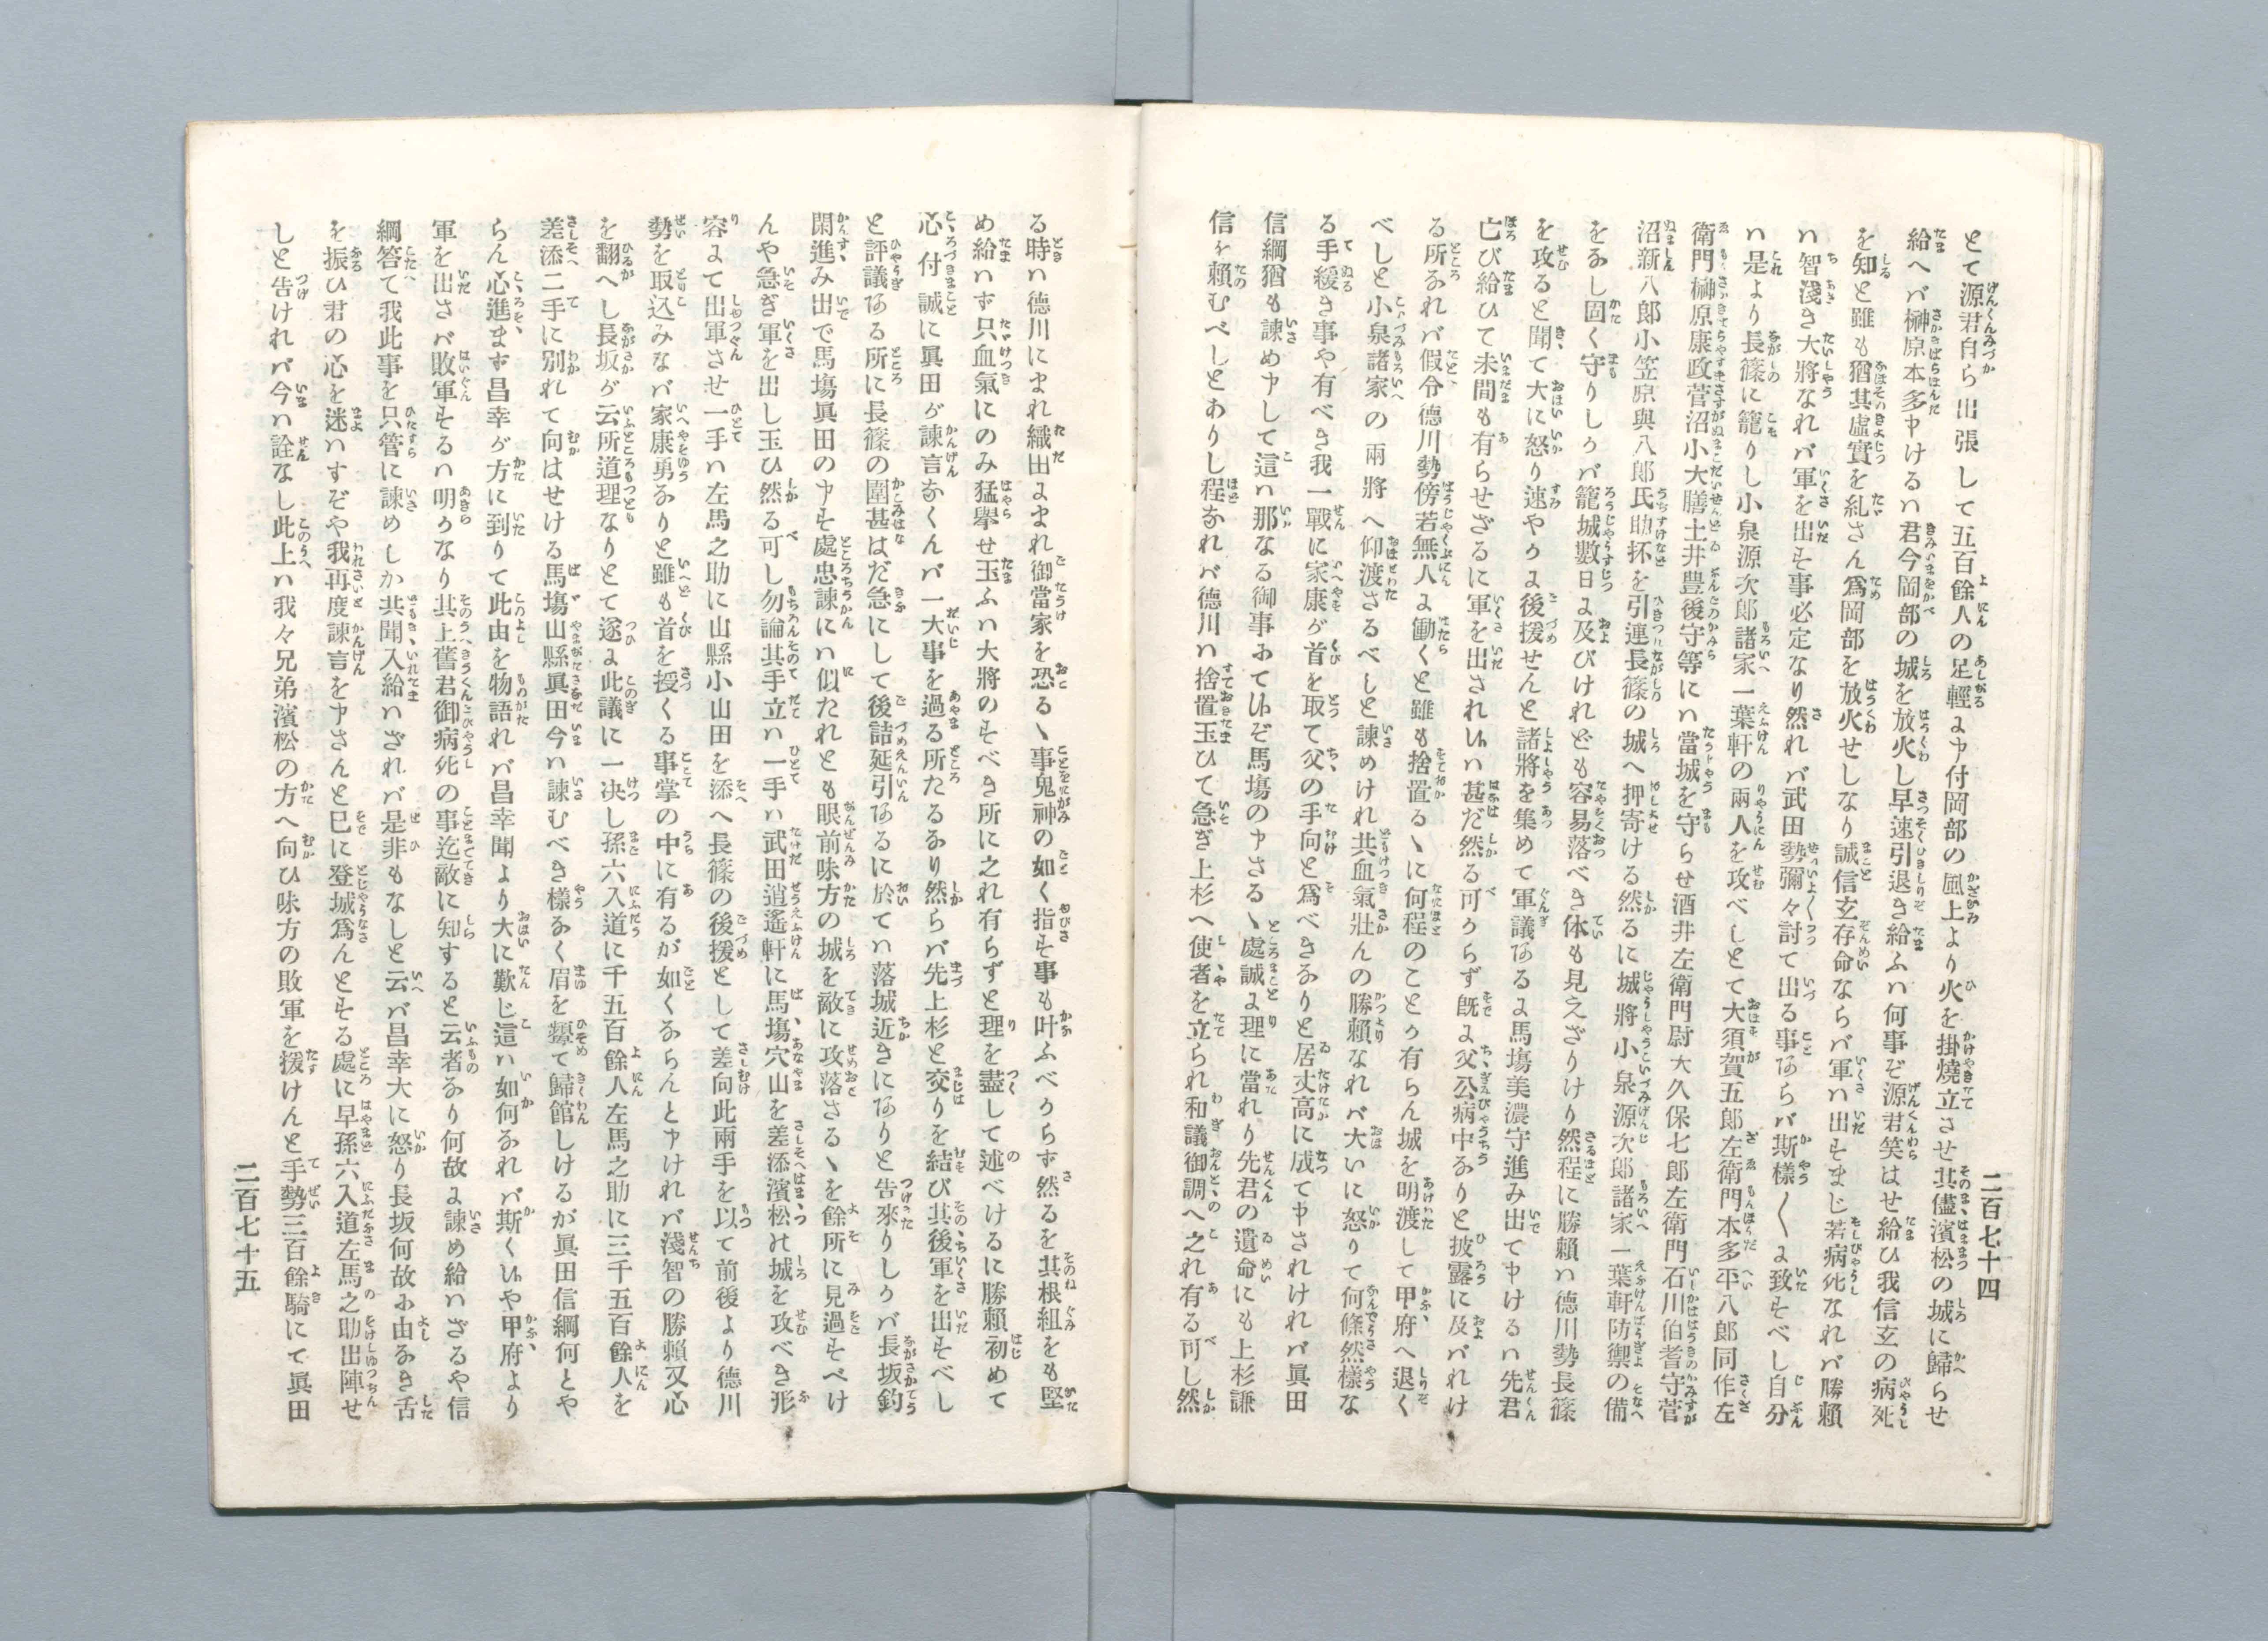 とて源君自ら出張して五百餘人の足輕に申付岡部の風上より火を掛燒立させ其儘濱松の城に歸らせ
給へバ榊原本多申けるハ君今岡部の城を放火し早速引退き給ふハ何事ぞ源君笑はせ給ひ我信玄の病死
を知と雖も猶其虛實を糺さん爲岡部を放火せしなり誠信玄存命ならバ軍ハ出すまじ若病死なれバ勝賴
ハ智淺き大將なれバ軍を出す事必定なり然れバ武田勢彌々討て出る事あらバ斯樣〱に致すべし自分
ハ是より長篠に籠りし小泉源次郎諸家一葉軒の兩人を攻べしとて大須賀五郎左衛門本多平八郎同作左
衛門榊原康政菅沼小大膳土井豊後守等にハ當城を守らせ酒井左衛門尉大久保七郎左衛門石川伯耆守菅
沼新八郎小笠原與八郎氏助抔を引連長篠の城へ押寄ける然るに城將小泉源次郎諸家一葉軒防禦の備
をなし固く守りしかバ籠城數日に及びけれども容易落べき体も見えざりけり然程に勝賴ハ德川勢長篠
を攻ると聞て大に怒り速やかに後援せんと諸將を集めて軍議あるに馬塲美濃守進み出て申けるハ先君
亡び給ひて未間も有らせざるに軍を出されんハ甚だ然る可からず既に父公病中なりと披露に及バれけ
る所なれバ假令德川勢傍若無人に働くと雖も捨置るゝに何程のことか有らん城を明渡して甲府へ退く
べしと小泉諸家の兩將へ仰渡さるべしと諫めけれ共血氣壯んの勝賴なれバ大いに怒りて何條然樣な
る手緩き事や有べき我一戰に家康が首を取て父の手向と爲べきなりと居丈高に成て申されけれバ眞田
信綱猶も諫め申して這ハ那なる御事かていぞ馬塲の申さるゝ處誠に理に當れり先君の遺命にも上杉謙
信を賴むべしとありし程なれバ德川ハ捨置玉ひて急ぎ上杉へ使者を立られ和議御調へ之れ有る可し然
二百七十四
る時ハ德川にまれ織田にまれ御當家を恐るゝ事鬼神の如く指す事も叶ふべからず然るを其根組をも堅
め給ハず只血氣にのみ猛擧せ玉ふハ大將のすべき所に之れ有らずと理を盡して述べけるに勝賴初めて
心付誠に眞田が諫言なくんバ一大事を過る所たるなり然らバ先上杉と交りを結び其後軍を出すべし
と評議ある所に長篠の圍甚はだ急にして後詰延引あるに於てハ落城近きにありと告來りしかバ長坂釣
閑進み出で馬塲眞田の申す處忠諫にハ似たれとも眼前味方の城を敵に攻落さるゝを餘所に見過すべけ
んや急ぎ軍を出し玉ひ然る可し勿論其手立ハ一手ハ武田逍遙軒に馬塲穴山を差添濱松の城を攻べき形
容にて出軍させ一手ハ左馬之助に山縣小山田を添へ長篠の後援として差向此兩手を以て前後より德川
勢を取込みなバ家康勇なりと雖も首を授くる事掌の中に有るが如くならんと申けれバ淺智の勝賴又心
を翻へし長坂が云所道理なりとて遂に此議に一决し孫六入道に千五百餘人左馬之助に三千五百餘人を
差添二手に別れて向はせける馬塲山縣眞田今ハ諫むべき樣なく眉を顰て歸館しけるが眞田信綱何とや
らん心進まず昌幸が方に到りて此由を物語れバ昌幸聞より大に歎じ這ハ如何なれバ斯くいや甲府より
軍を出さバ敗軍するハ明かなり其上舊君御病死の事迄敵に知すると云者なり何故に諫め給ハざるや信
綱答て我此事を只管に諫めしか共聞入給ハざれバ是非もなしと云バ昌幸大に怒り長坂何故か由なき舌
を振ひ君の心を迷ハすぞや我再度諫言を申さんと已に登城爲んとする處に早孫六入道左馬之助出陣せ
しと告けれバ今ハ詮なし此上ハ我々兄弟濱松の方へ向ひ味方の敗軍を援けんと手勢三百餘騎にて眞田
二百七十五